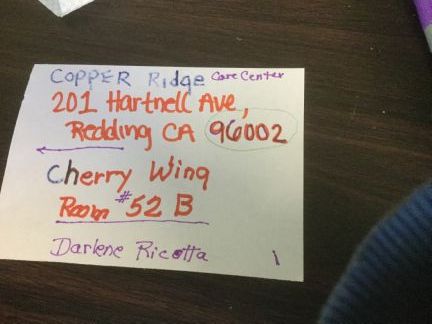 COPPER Ridge Care Center
201 Hartnell Ave,
Redding CA 96002
Cherry Wing
Room #52 B
Darlene Ricotta